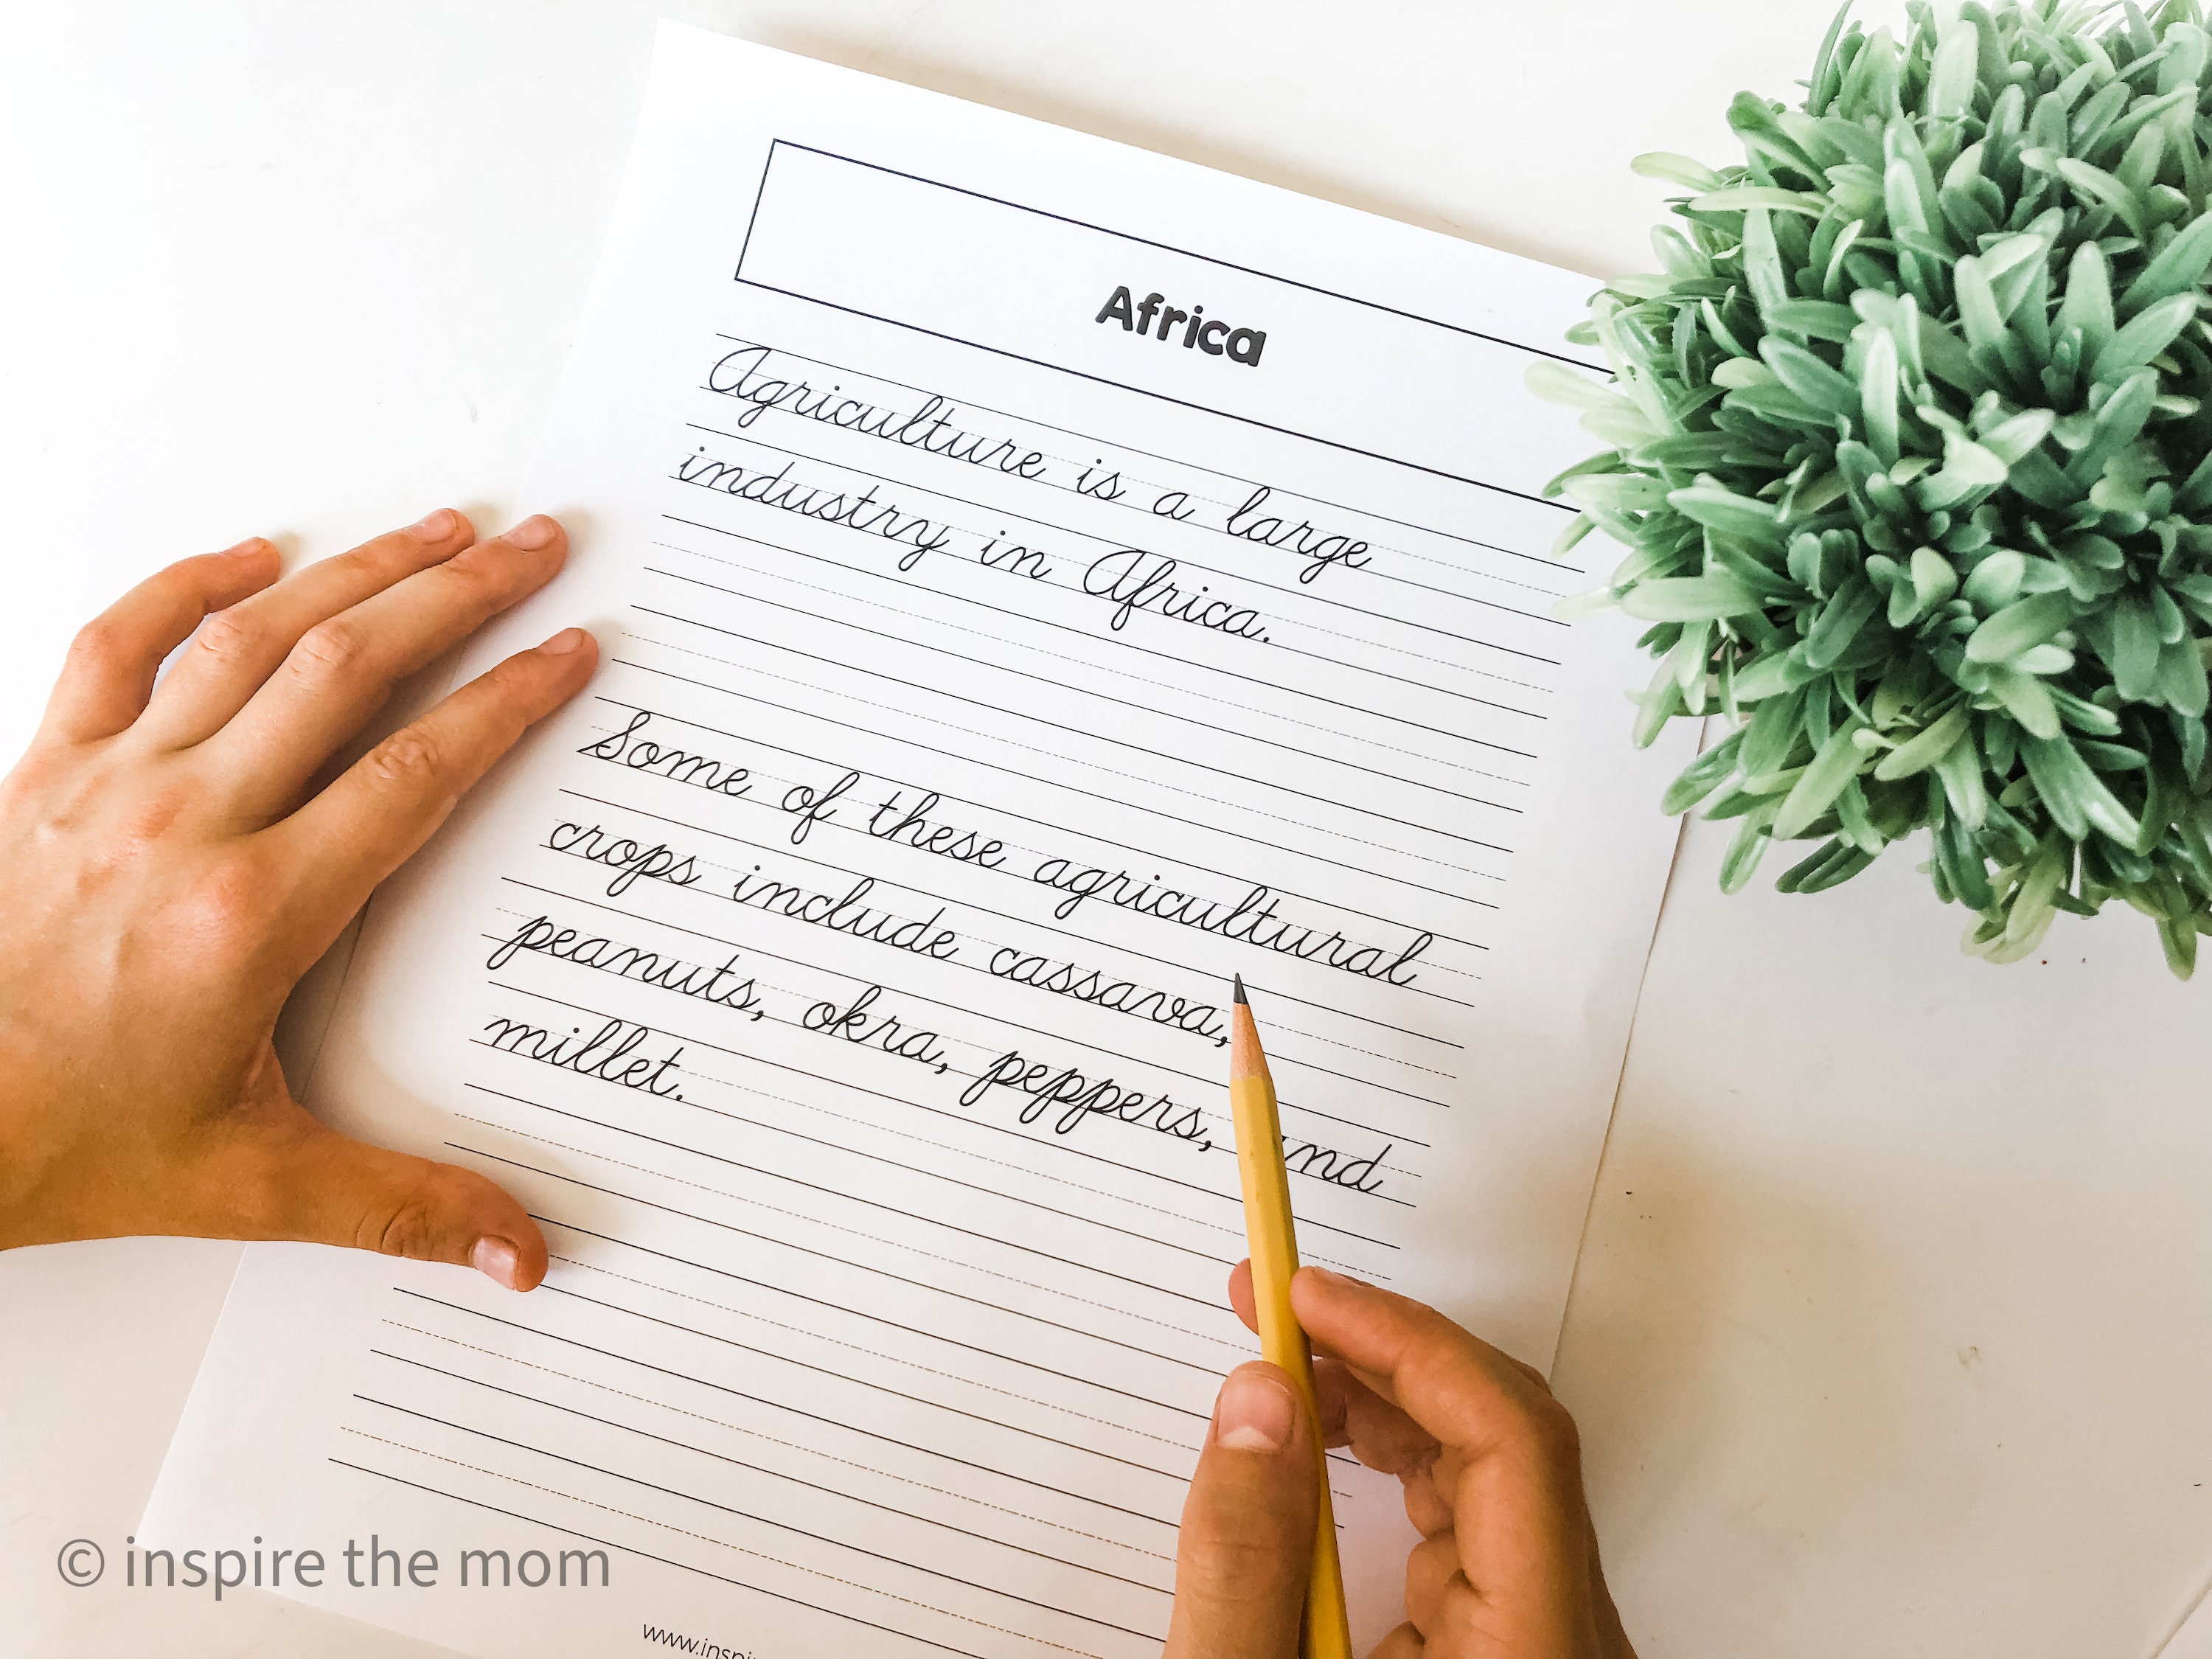 Africa
Agriculture is a large
industry in Africa.
Some of these agricultural
crops include cassava,
peanuts, okra, peppers, and
millet.
© inspire the mom